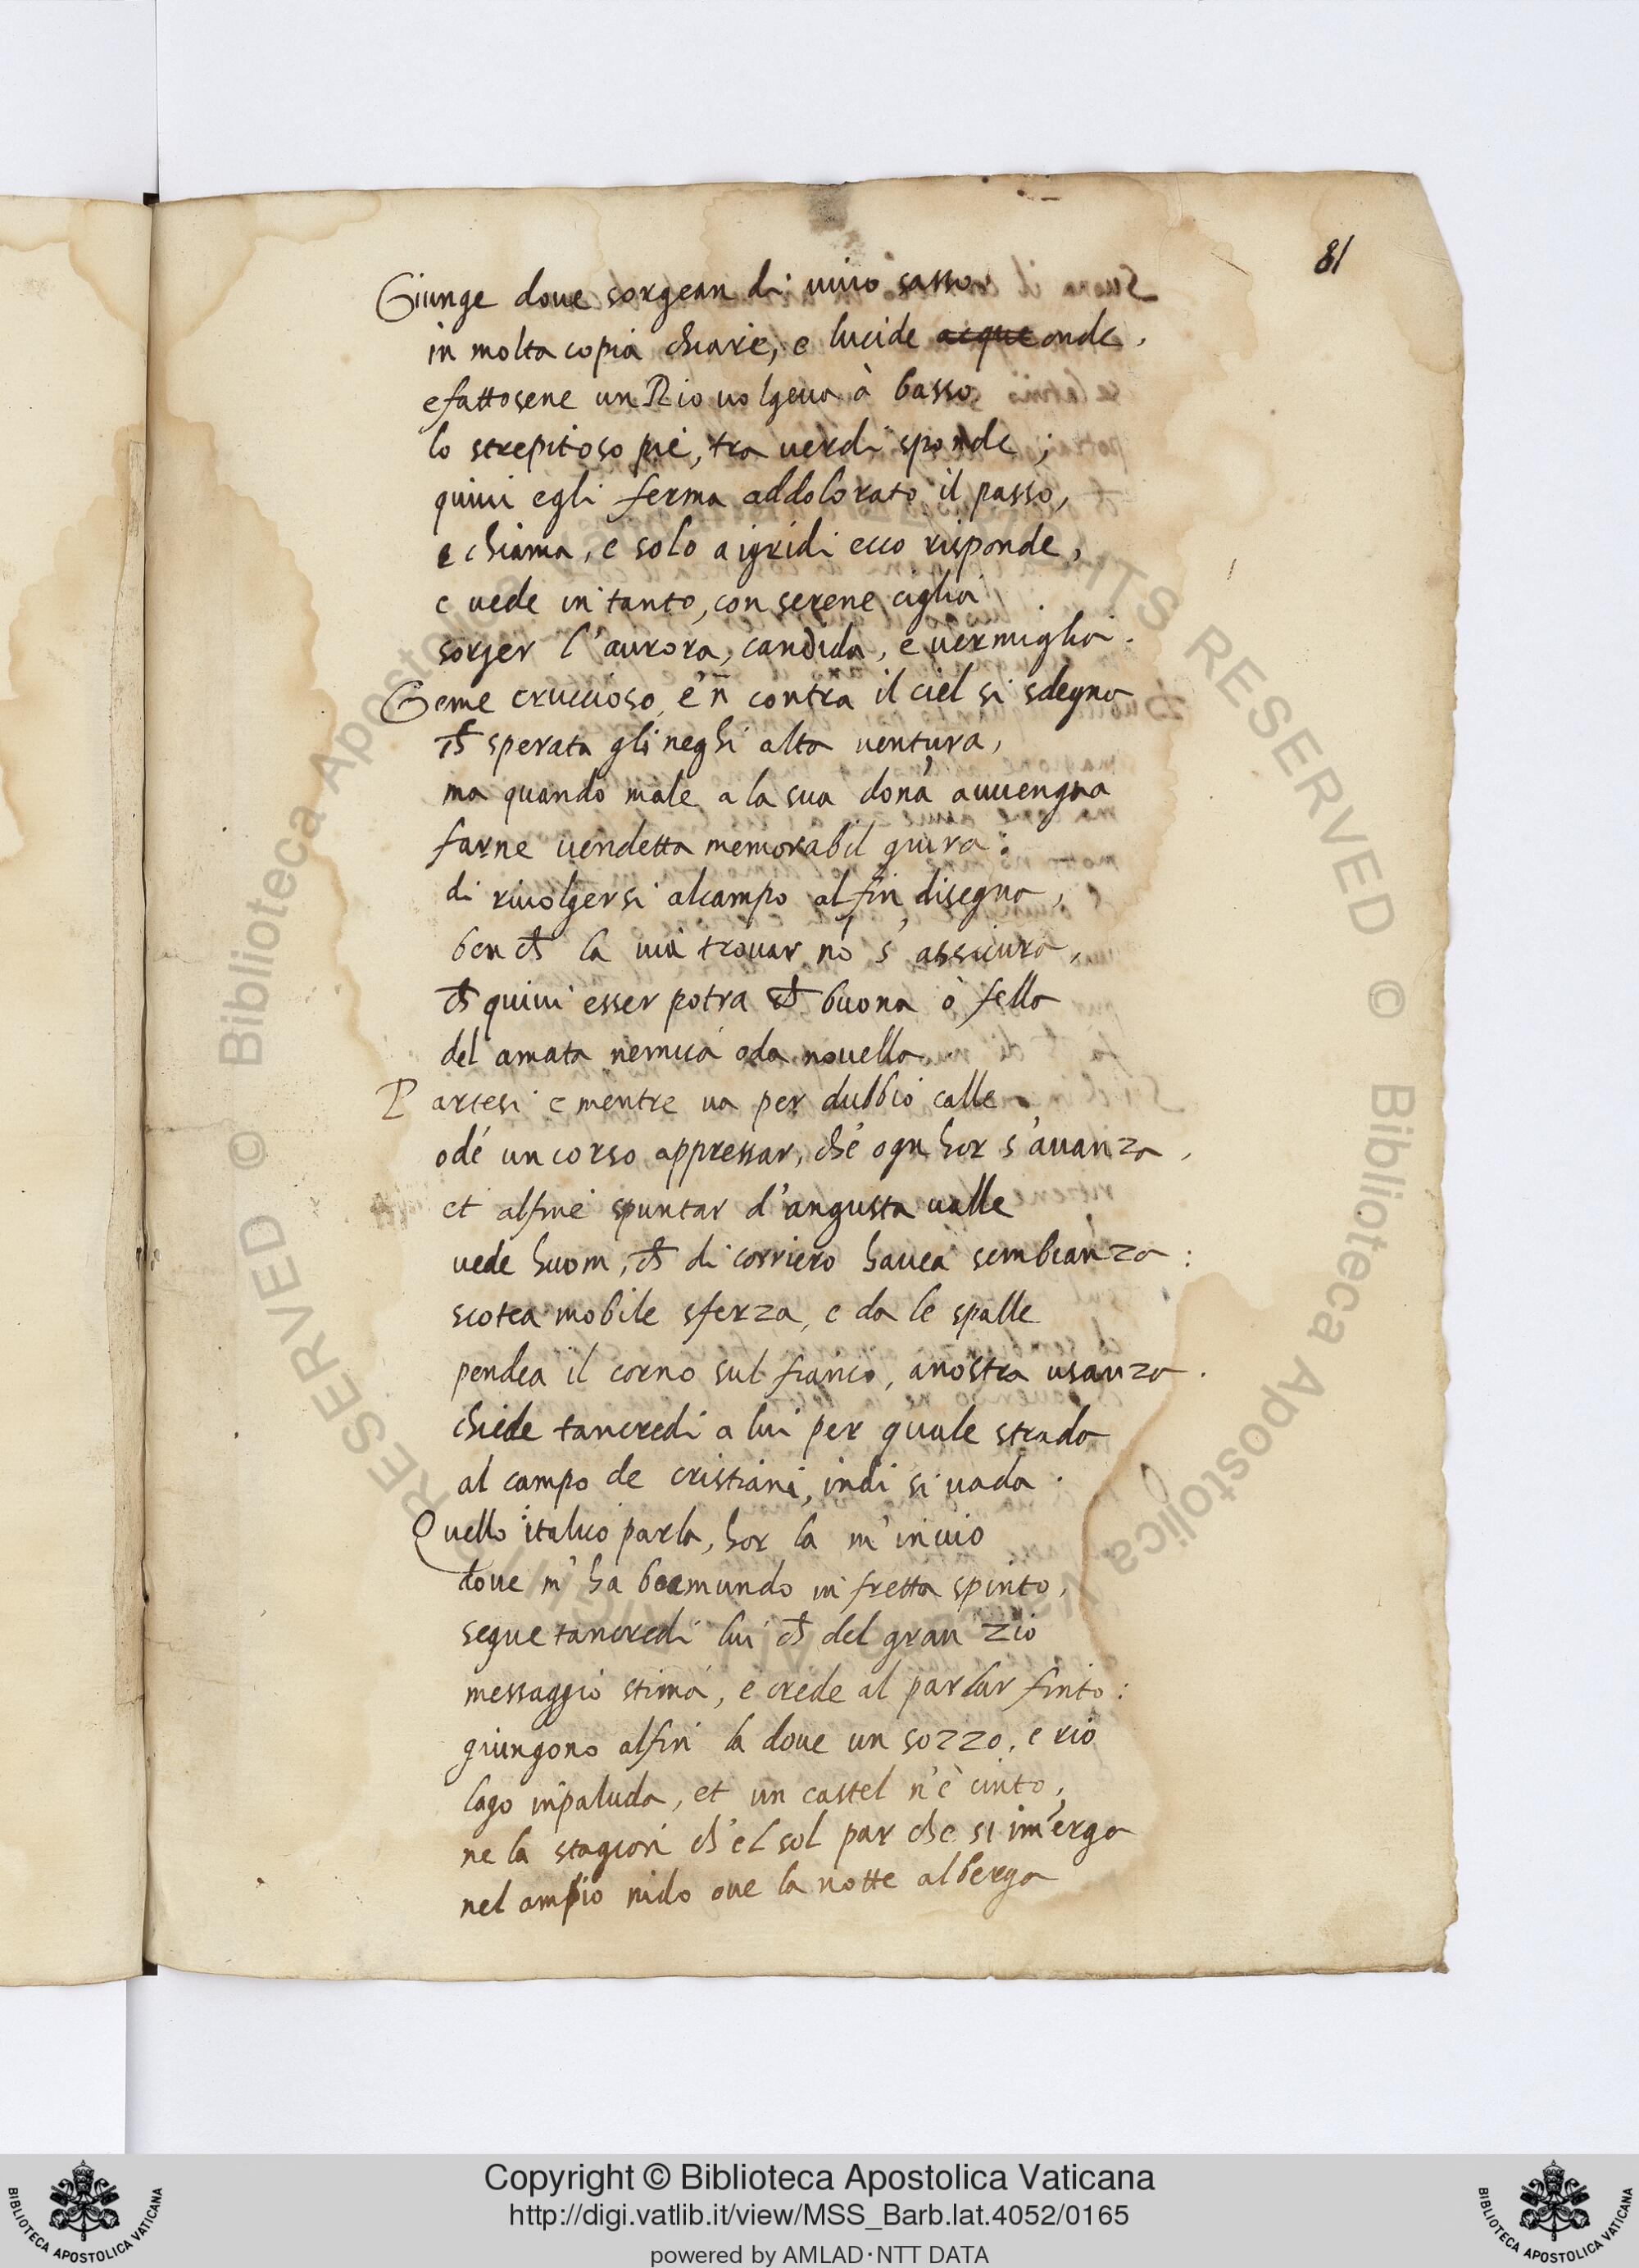 81
Giunge doue sorgean di uiuo sasso
in molta copia chiare, e lucide acque onde,
e fattosene un Rio uolgeua à basso
lo strepitoso piè, tra uerdi sponde;
quiui egli ferma addolorato il passo,
e chiama, e solo a i gridi ecco risponde,
e uede in tanto, con serene ciglia
sorger l'aurora, candida, e uermiglia.
Geme cruccioso, e'n contra il ciel si sdegna
ch sperata gli neghi alta ventura,
ma quando male a la sua dona auuengna
farne uendetta memorabil giura:
di riuolgersi al campo al fin disegna,
ben ch la uia trouar nò s'assicura,
ch quiui esser potra ch buona ò fella
del amata nemica oda nouella
Partesi e mentre ua per dubbio calle
ode un corso appressar, che ogn hor s'auanza,
et alfine spuntar d'angusta ualle
uede huom, ch di corriero hauea sembianza:
scotea mobile sferza, e da le spalle
pendea il corno sul fianco, a nostra usanza.
chiede tancredi a lui per quale strada
al campo de cristiani, indi si uada.
Quello italico parla, hor la m'inuio
doue m'ha boemundo in fretta spinto,
segue tancredi lui ch del gran zio
messaggio stima, e crede al parlar finto:
giungono alfin la doue un sozzo, e rio
lago inpaluda, et un castel n'è cinto,
ne la stagion ch'el sol par che si im'erga
nel ampio nido oue la notte alberga
© Biblioteca Apostolica Vaticana ALL RIGHTS RESERVED
Copyright © Biblioteca Apostolica Vaticana
http://digi.vatlib.it/view/MSS_Barb.lat.4052/0165
powered by AMLAD·NTT DATA
BIBLIOTECA APOSTOLICA VATICANA
BIBLIOTECA APOSTOLICA VATICANA